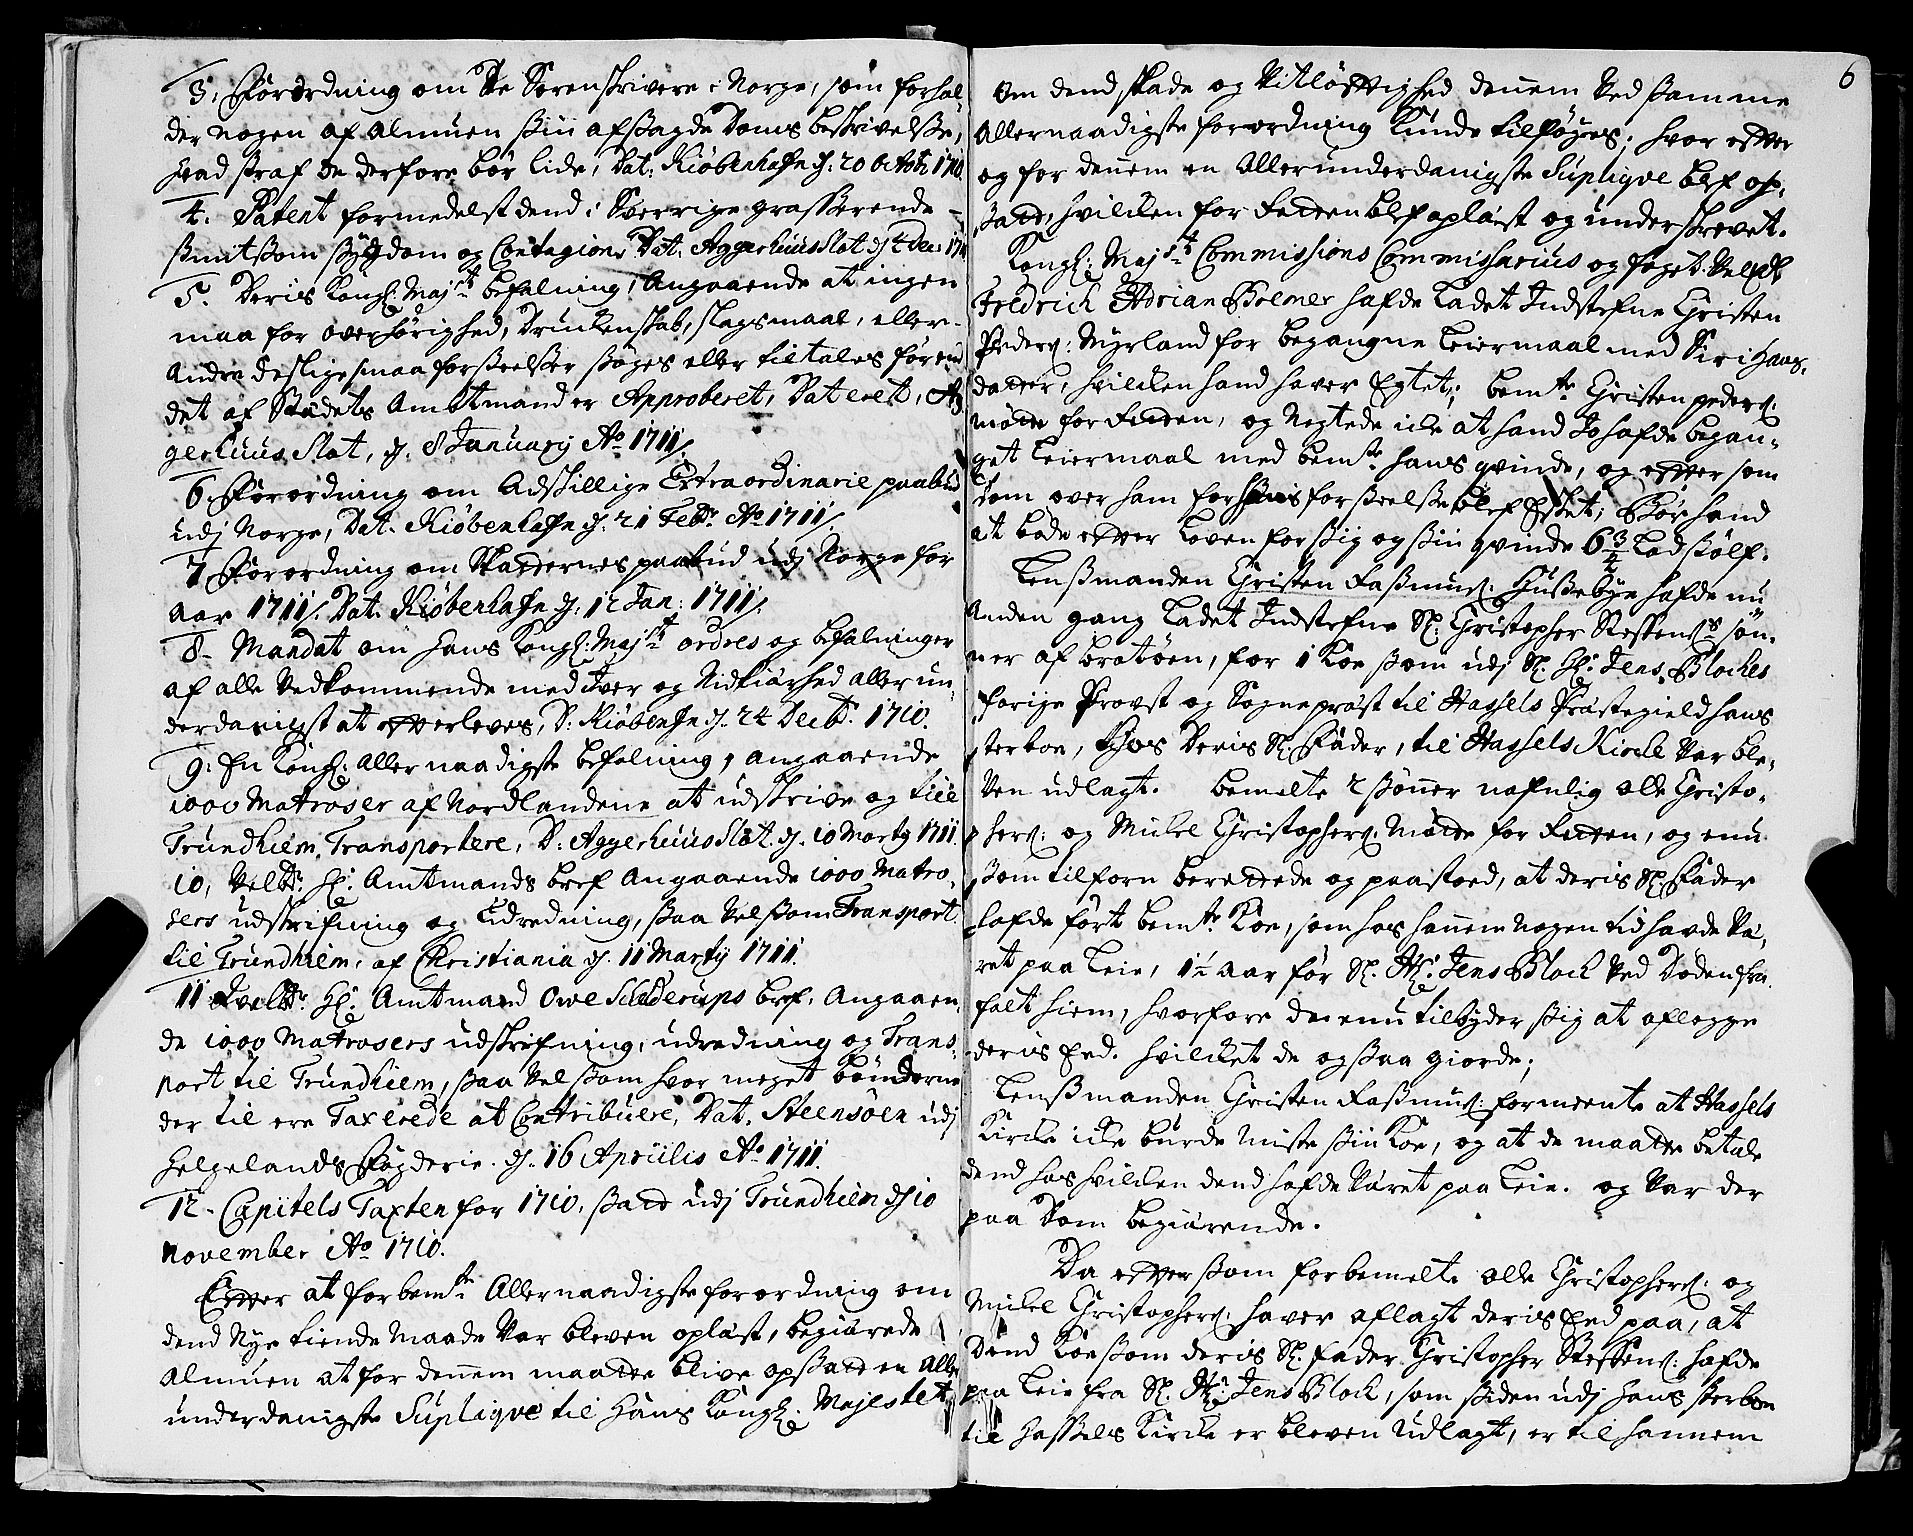 3. Forordning om De Sorenskrivere i Norge, som forhol-
der nogen af Almuen sin afsagde Doms beskrivelse,
hvad straf de derfore bør lide, Dat. Kiøbenhafn d. 20 octobr 1710.
4. Patent formedelst dend i Sverrige grasserende
smitsom sygdom og Contagion, Dat. Aggerhuus Slot d. 4 Dec: 1710
5. Deris Kongl: Majsts befalning, Angaaende at ingen
maa for overhørighed, Druckenskab, slagsmaal, eller
Andre deslige smaa forseelser søges eller tiltales før end
det af Stedets Ambtmand er Approberet, Dateret, Ag-
gerhuus Slot, d. 8 January Ao 1711/.
6. Forordning om Adskillige Extraordinarie paabud
udj Norge, Dat. Kiøbenhafn d. 21 Febr. Ao 1711/.
7 Forordning om Skatternes paabud udj Norge for
Aar 1711/. Dat. Kiøbenhafn d. 12 Jan: 1711/.
8. Mandat om hans Kongl: Majsts ordres og befalninger
af alle Vedkommende med Iver og Nidkiærhed allerun-
derdanigst at efterleves, D. Kiøbenhfn d. 24 Decbr. 1710.
9. En Kongl: Aller naadigste befalning, angaaende
1000 Matroser af Nordlandene at udskrive og till
Trundhiem Transportere, D: Aggerhuus Slot d. 10 Marty 1711
10, Velbr. Hr. Amtmands bref Angaaende 1000 Matro-
sers udskrifning og Udredning, saa vel som Transport
til Trundhiem, af Christiania d. 11 Marty 1711.
11 Velbr. Hr. Amtmand Owe Schelderups bref, Angaaen-
de 1000 Matrosers udskrifning, udredning og Trans-
port til Trundhiem, saa vel som hvor meget bønderne
der til ere Taxerede at Contribuere, Dat. Steensoen udj
Helgelands Fogderie. d. 16 Apriilis Ao 1711.
12. Capitels Taxten for 1710, satt udj Trundhiem d 10
November Ao 1710.
Efter at forbemte Allernaadigste forordning om
dend Nye tiende Maade var bleven oplæst, begiærede
Almuen at for dennem maatte blive opsatt en Aller
underdanigste Suplique til Hans Kongl: Majestet
6
Om dend skade og Vitløftighed dennem ved samme
Allernaadigste forordning kunde tilføyes; hvor efter
og for dennem en Allerunderdanigste Suplique blef op-
satt, hvilcken for Retten blef oplæst og underskrevet.
Kongl: Majsts Commissions Commissarius og foget Velædle
Fredrich Adrian Bolmer hafde ladet Indstefne Christen
Peders: Myrland for begangne Leiermaal med Siri Hans-
datter, hvilcken hand haver Egtet; bemte Christen peders:
møtte for Retten, og Negtede icke at hand Jo hafde began-
get Leiermaal med bemte hans qvinde, og efter som
dom over ham for hans forseelse blef Esket; Bør hand
at bøde efter Loven for sig og sin qvinde 6 3/4 Lod sølf.
Lensmanden Christen Rasmus: Hussebye hafde nu
Anden gang ladet Indstefne Sl: Christopher Steffens: søn-
ner af bratøen, for 1 Koe som udj Sl. Hr. Jens Bloches
forige Provst og Sognepræst til Hassels Præstegield hans
sterboe, hos Deris Sl: Fader, til Hassels Kircke var ble-
ven udlagt. Bemelte 2 sønner nafnlig Olle Christo-
phers: og Mickel Christophers: møtte for Retten, og enu
som tilforn berettede og paastoed, at deris Sl: Fader
hafde ført bemte Koe, som hos hannem nogen tid havde væ-
ret paa leie, 1½ aar før Sl. Hr. Jens Bloch ved Døden fra
falt hiem, hvorfore de enu tilbyder sig at aflegge
deris Eed. hvilcket de ogsaa giorde;
Lensmanden Christen Rasmus: formeente at Hassels
Kircke icke burde Miste sin Koe, og at de maatte betale
dend hos hvilcken dend hafde været paa leie. og var der
paa Dom begiærende.
Da eftersom forbemelte Olle Christophers: og
Mickel Christophers: haver aflagt deris Eed paa, at
Dend Koe som deris Sl: fader Christopher Steffens: hafde
paa Leie fra Sl. Hr: Jens Bloch, som siden udj hans sterboe
til Hassels Kircke er bleven Udlagt, er til hannem